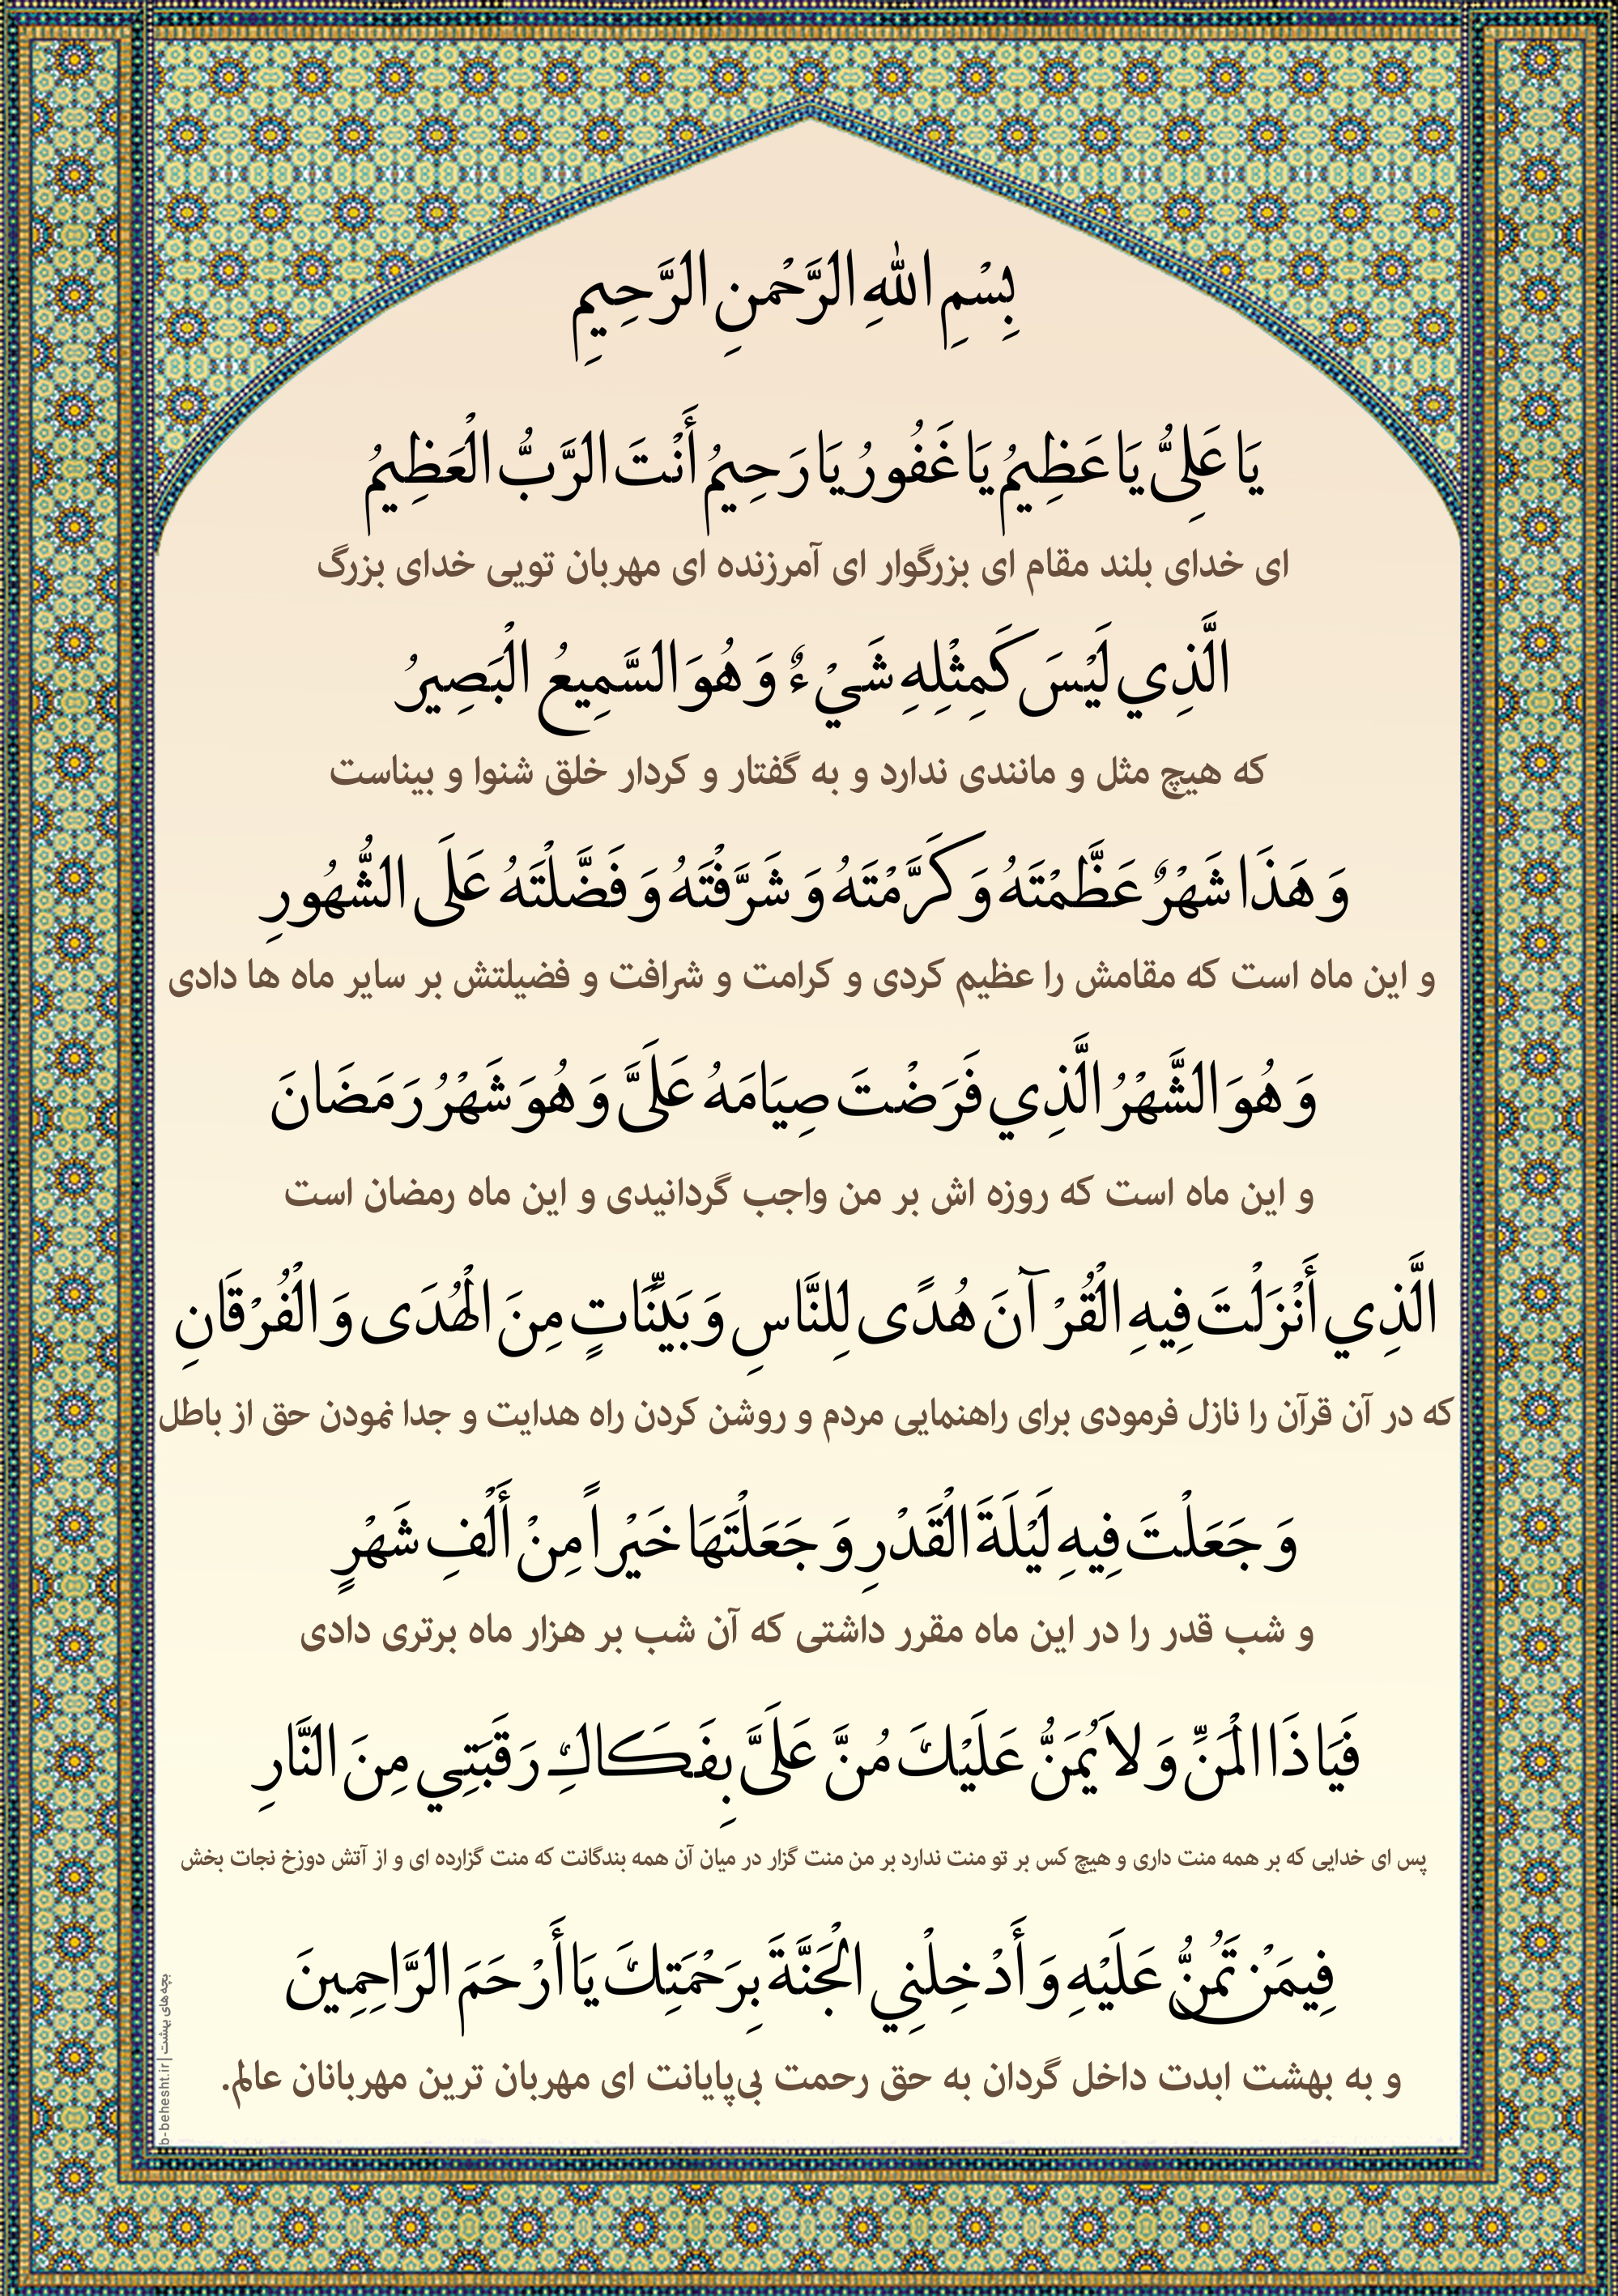 بِسْمِ اللّٰهِ الرَّحْمنِ الرَّحِيمِ
يَا عَلِيُّ يَا عَظِيمُ يَا غَفُورُ يَا رَحِيمُ أَنْتَ الرَّبُّ الْعَظِيمُ
ای خدای بلند مقام ای بزرگوار ای آمرزنده ای مهربان تویی خدای بزرگ
الَّذِي لَيْسَ كَمِثْلِهِ شَيْءٌ وَ هُوَ السَّمِيعُ الْبَصِيرُ
که هیچ مثل و مانندی ندارد و به گفتار و کردار خلق شنوا و بیناست
وَ هَذَا شَهْرٌ عَظَّمْتَهُ وَ كَرَّمْتَهُ وَ شَرَّفْتَهُ وَ فَضَّلْتَهُ عَلَى الشُّهُورِ
و این ماه است که مقامش را عظیم کردی و کرامت و شرافت و فضیلتش بر سایر ماه ها دادی
وَ هُوَ الشَّهْرُ الَّذِي فَرَضْتَ صِيَامَهُ عَلَيَّ وَ هُوَ شَهْرُ رَمَضَانَ
و این ماه است که روزه اش بر من واجب گردانیدی و این ماه رمضان است
الَّذِي أَنْزَلْتَ فِيهِ الْقُرْآنَ هُدًى لِلنَّاسِ وَ بَيِّنَاتٍ مِنَ الْهُدَى وَ الْفُرْقَانِ
که در آن قرآن را نازل فرمودی برای راهنمایی مردم و روشن کردن راه هدایت و جدا نمودن حق از باطل
وَ جَعَلْتَ فِيهِ لَيْلَةَ الْقَدْرِ وَ جَعَلْتَهَا خَيْراً مِنْ أَلْفِ شَهْرٍ
و شب قدر را در این ماه مقرر داشتی که آن شب بر هزار ماه برتری دادی
فَيَا ذَا الْمَنِّ وَ لاَ يُمَنُّ عَلَيْكَ مُنَّ عَلَيَّ بِفَكَاكِ رَقَبَتِي مِنَ النَّارِ
پس ای خدایی که بر همه منت داری و هیچ کس بر تو منت ندارد بر من منت گزار در میان آن همه بندگانت که منت گزارده ای و از آتش دوزخ نجات بخش
فِيمَنْ تَمُنُّ عَلَيْهِ وَ أَدْخِلْنِي الْجَنَّةَ بِرَحْمَتِكَ يَا أَرْحَمَ الرَّاحِمِينَ
و به بهشت ابدت داخل گردان به حق رحمت بی‌پایانت ای مهربان ترین مهربانان عالم.
بچه‌های بهشت | b-behesht.ir